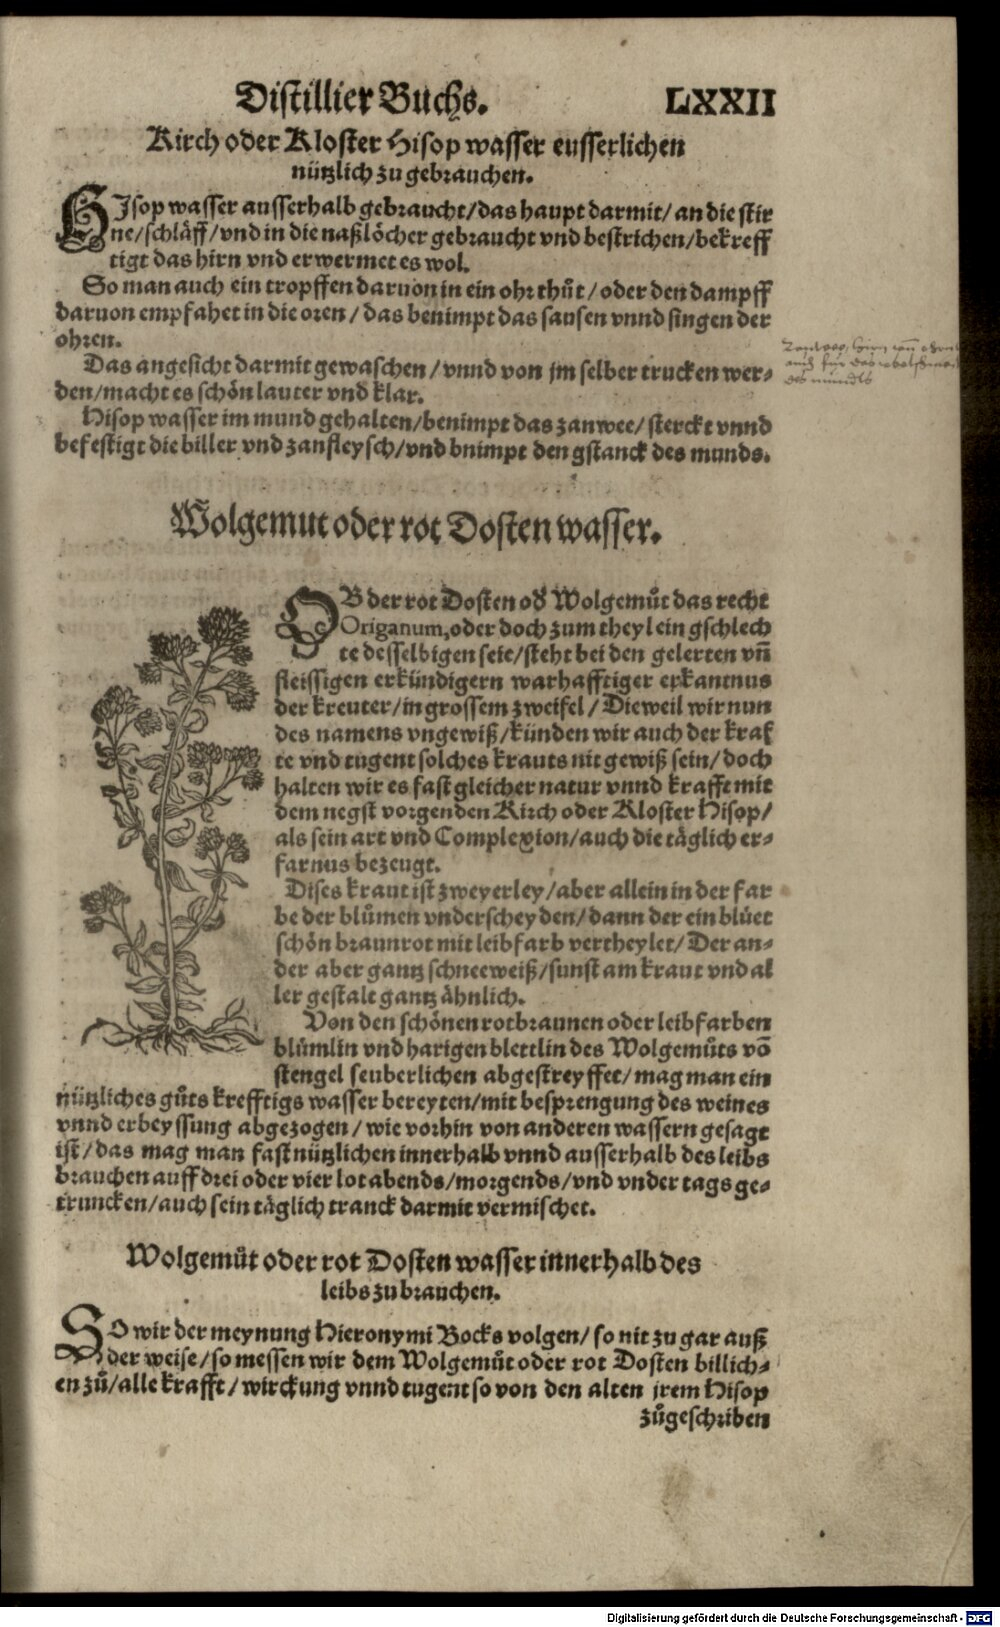 Distillier Buchs. LXXII
Kirch oder Kloster Hisop wasser eusserlichen
nützlich zu gebrauchen.
HIsop wasser ausserhalb gebraucht/das haupt darmit/an die stir
ne/schläff/vnd in die naßlöcher gebraucht vnd bestrichen/bekreff
tigt das hirn vnd erwermet es wol.
So man auch ein tropffen daruon in ein ohr thůt/oder den dampff
daruon empfahet in die oren/das benimpt das sausen vnnd singen der
ohren.
Das angesicht darmit gewaschen/vnnd von jm selber trucken wer-
den/macht es schön lauter vnd klar.
Hisop wasser im mund gehalten/benimpt das zanwee/sterckt vnnd
befestigt die biller vnd zanfleysch/vnd bnimpt den gstanck des munds.
des mundts
Wolgemut oder rot Dosten wasser.
OB der rot Dosten od' Wolgemůt das recht
Origanum, oder doch zum theyl ein gschlech
te desselbigen seie/steht bei den gelerten vñ
fleissigen erkündigern warhafftiger erkantnus
der kreuter/in grossem zweifel/Dieweil wir nun
des namens vngewiß/künden wir auch der kraf
te vnd tugent solches krauts nit gewiß sein/doch
halten wir es fast gleicher natur vnnd krafft mit
dem negst vorgenden Kirch oder Kloster Hisop/
als sein art vnd Complexion/auch die täglich er-
farnus bezeugt.
Dises kraut ist zweyerley/aber allein in der far
be der blůmen vnderscheyden/dann der ein blüet
schön braunrot mit leibfarb vertheylet/Der an-
der aber gantz schneeweiß/sunst am kraut vnd al
ler gestalt gantz ähnlich.
Von den schönen rotbraunen oder leibfarben
blümlin vnd harigen blettlin des Wolgemůts vō
stengel seuberlichen abgestreyffet/mag man ein
nützliches gůts krefftigs wasser bereyten/mit besprengung des weines
vnnd erbeyssung abgezogen/wie vorhin von anderen wassern gesagt
ist/das mag man fast nützlichen innerhalb vnnd ausserhalb des leibs
brauchen auff drei oder vier lot abends/morgends/vnd vnder tags ge-
truncken/auch sein täglich tranck darmit vermischet.
Wolgemůt oder rot Dosten wasser innerhalb des
leibs zu brauchen.
SO wir der meynung Hieronymi Bocks volgen/so nit zu gar auß
der weise/so messen wir dem Wolgemůt oder rot Dosten billich-
en zů/alle krafft/wirckung vnnd tugent so von den alten jrem Hisop
zůgeschriben
Digitalisierung gefördert durch die Deutsche Forschungsgemeinschaft - DFG